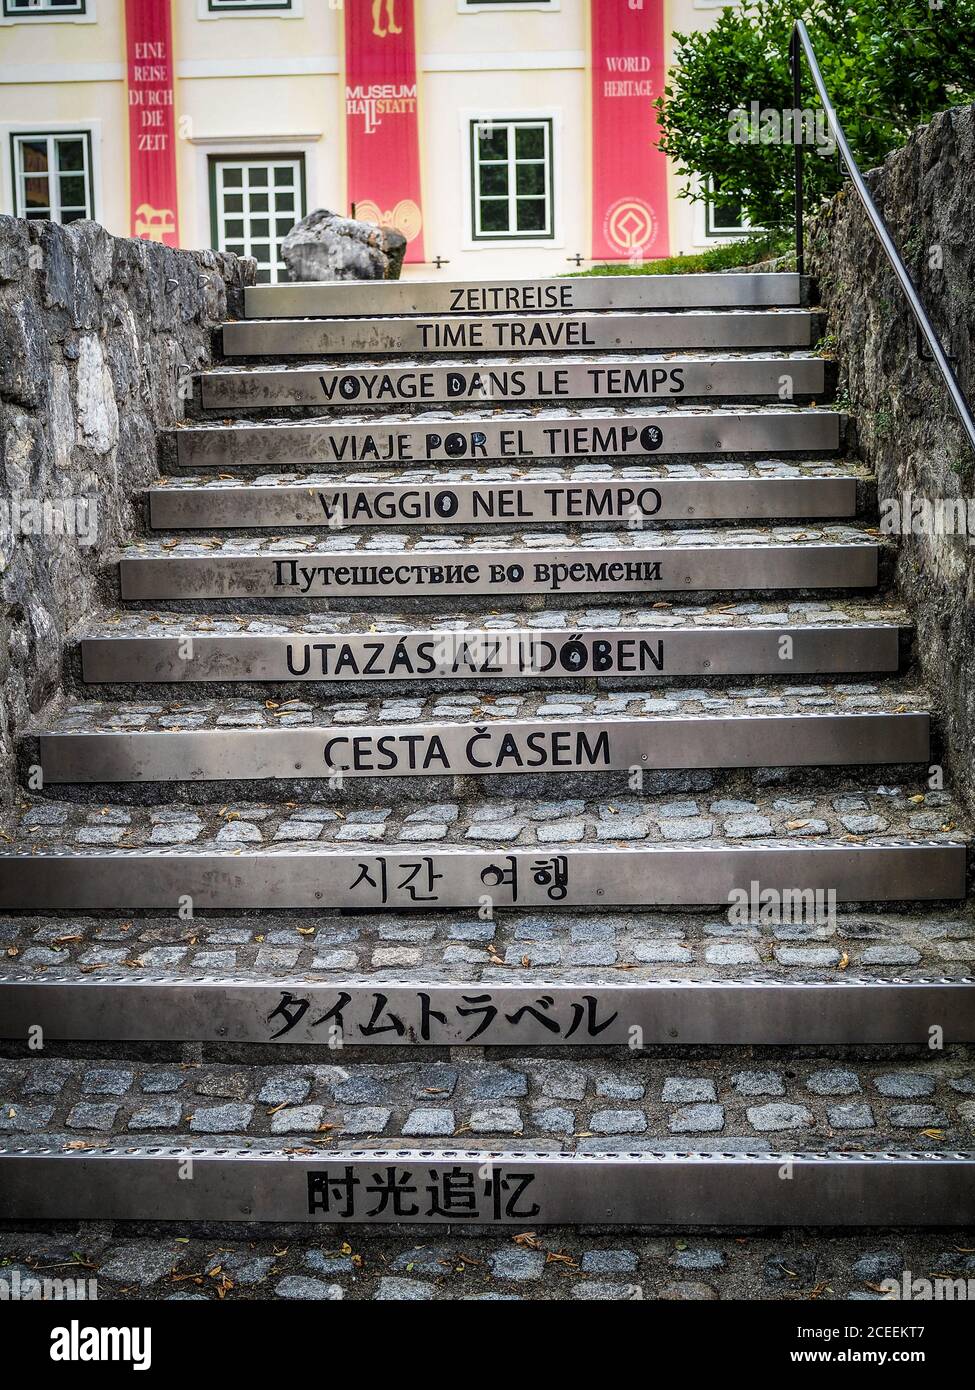 EINE
REISE
DURCH
DIE
ZEIT
MUSEUM
HALLSTATT
WORLD
HERITAGE
ZEITREISE
TIME TRAVEL
VOYAGE DANS LE TEMPS
VIAJE POR EL TIEMPO
VIAGGIO NEL TEMPO
Путешествие во времени
UTAZÁS AZ IDŐBEN
CESTA ČASEM
시간 여행
タイムトラベル
时光追忆
alamy
Image ID: 2CEEKT7
www.alamy.com